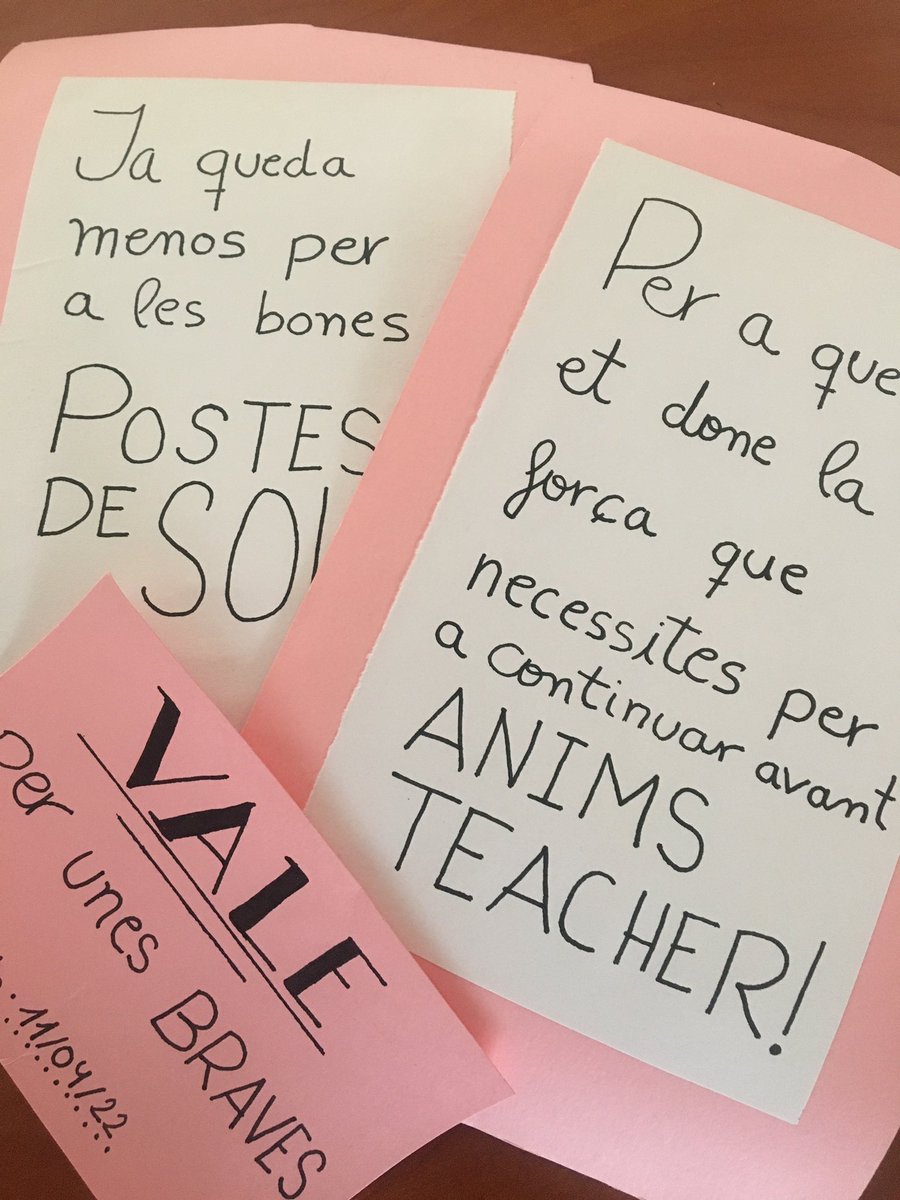 Ja queda
menos per
a les bones
POSTES
DE SOL
Per a que
et done la
força que
necessites per
a continuar avant
ANIMS
TEACHER!
VALE
per unes BRAVES
11/04/22